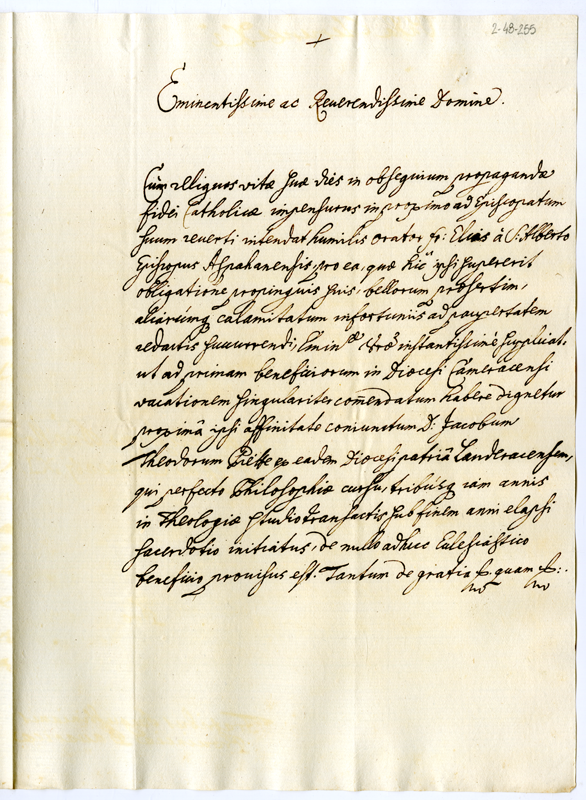 2-48-255
+
Eminentissime ac Reuerendissime Domine.
Cum reliquos vitæ suæ dies in obsequium propagandæ
fidei Catholicæ impensurus in proximo ad Episcopatum
suum reuerti intendat humilis orator fr: Elias à S. Alberto
Episcopus Aspahanensis, pro ea, quæ hic ipsi supererit
obligatione propinquis suis, bellorum præsertim,
aliarumq calamitatum infortuniis ad paupertatem
redactis succurrendi, Emin Vræ instantissimè supplicat,
ut ad primam beneficiorum in Diœcesi Cameracensi
vacationem singulariter comendatum habere dignetur
proximâ ipsi affinitate coniunctum D. Jacobum
Theodorum Piette ex eadem Diœcesi patriâ Landeracensem,
qui perfecto Philosophiæ cursu, tribusq iam annis
in Theologiæ studio transactis sub finem anni elapsi
sacerdotio initiatus, de nullo adhuc Ecclesiastico
beneficio prouisus est. Tantum de gratia &. quam &:.